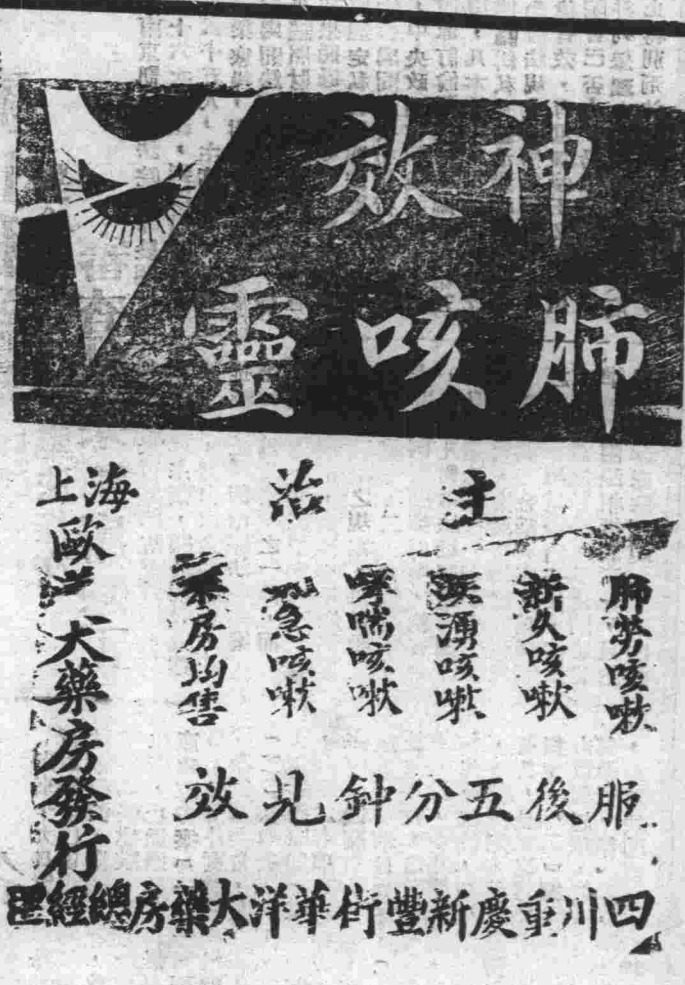 神效
肺咳靈
主治
肺勞咳嗽
新久咳嗽
痰湧咳嗽
哮喘咳嗽
急咳嗽
房均售
服後五分鐘見效
上海
歐
大藥房發行
四川重慶新豐街華洋大藥房總經理